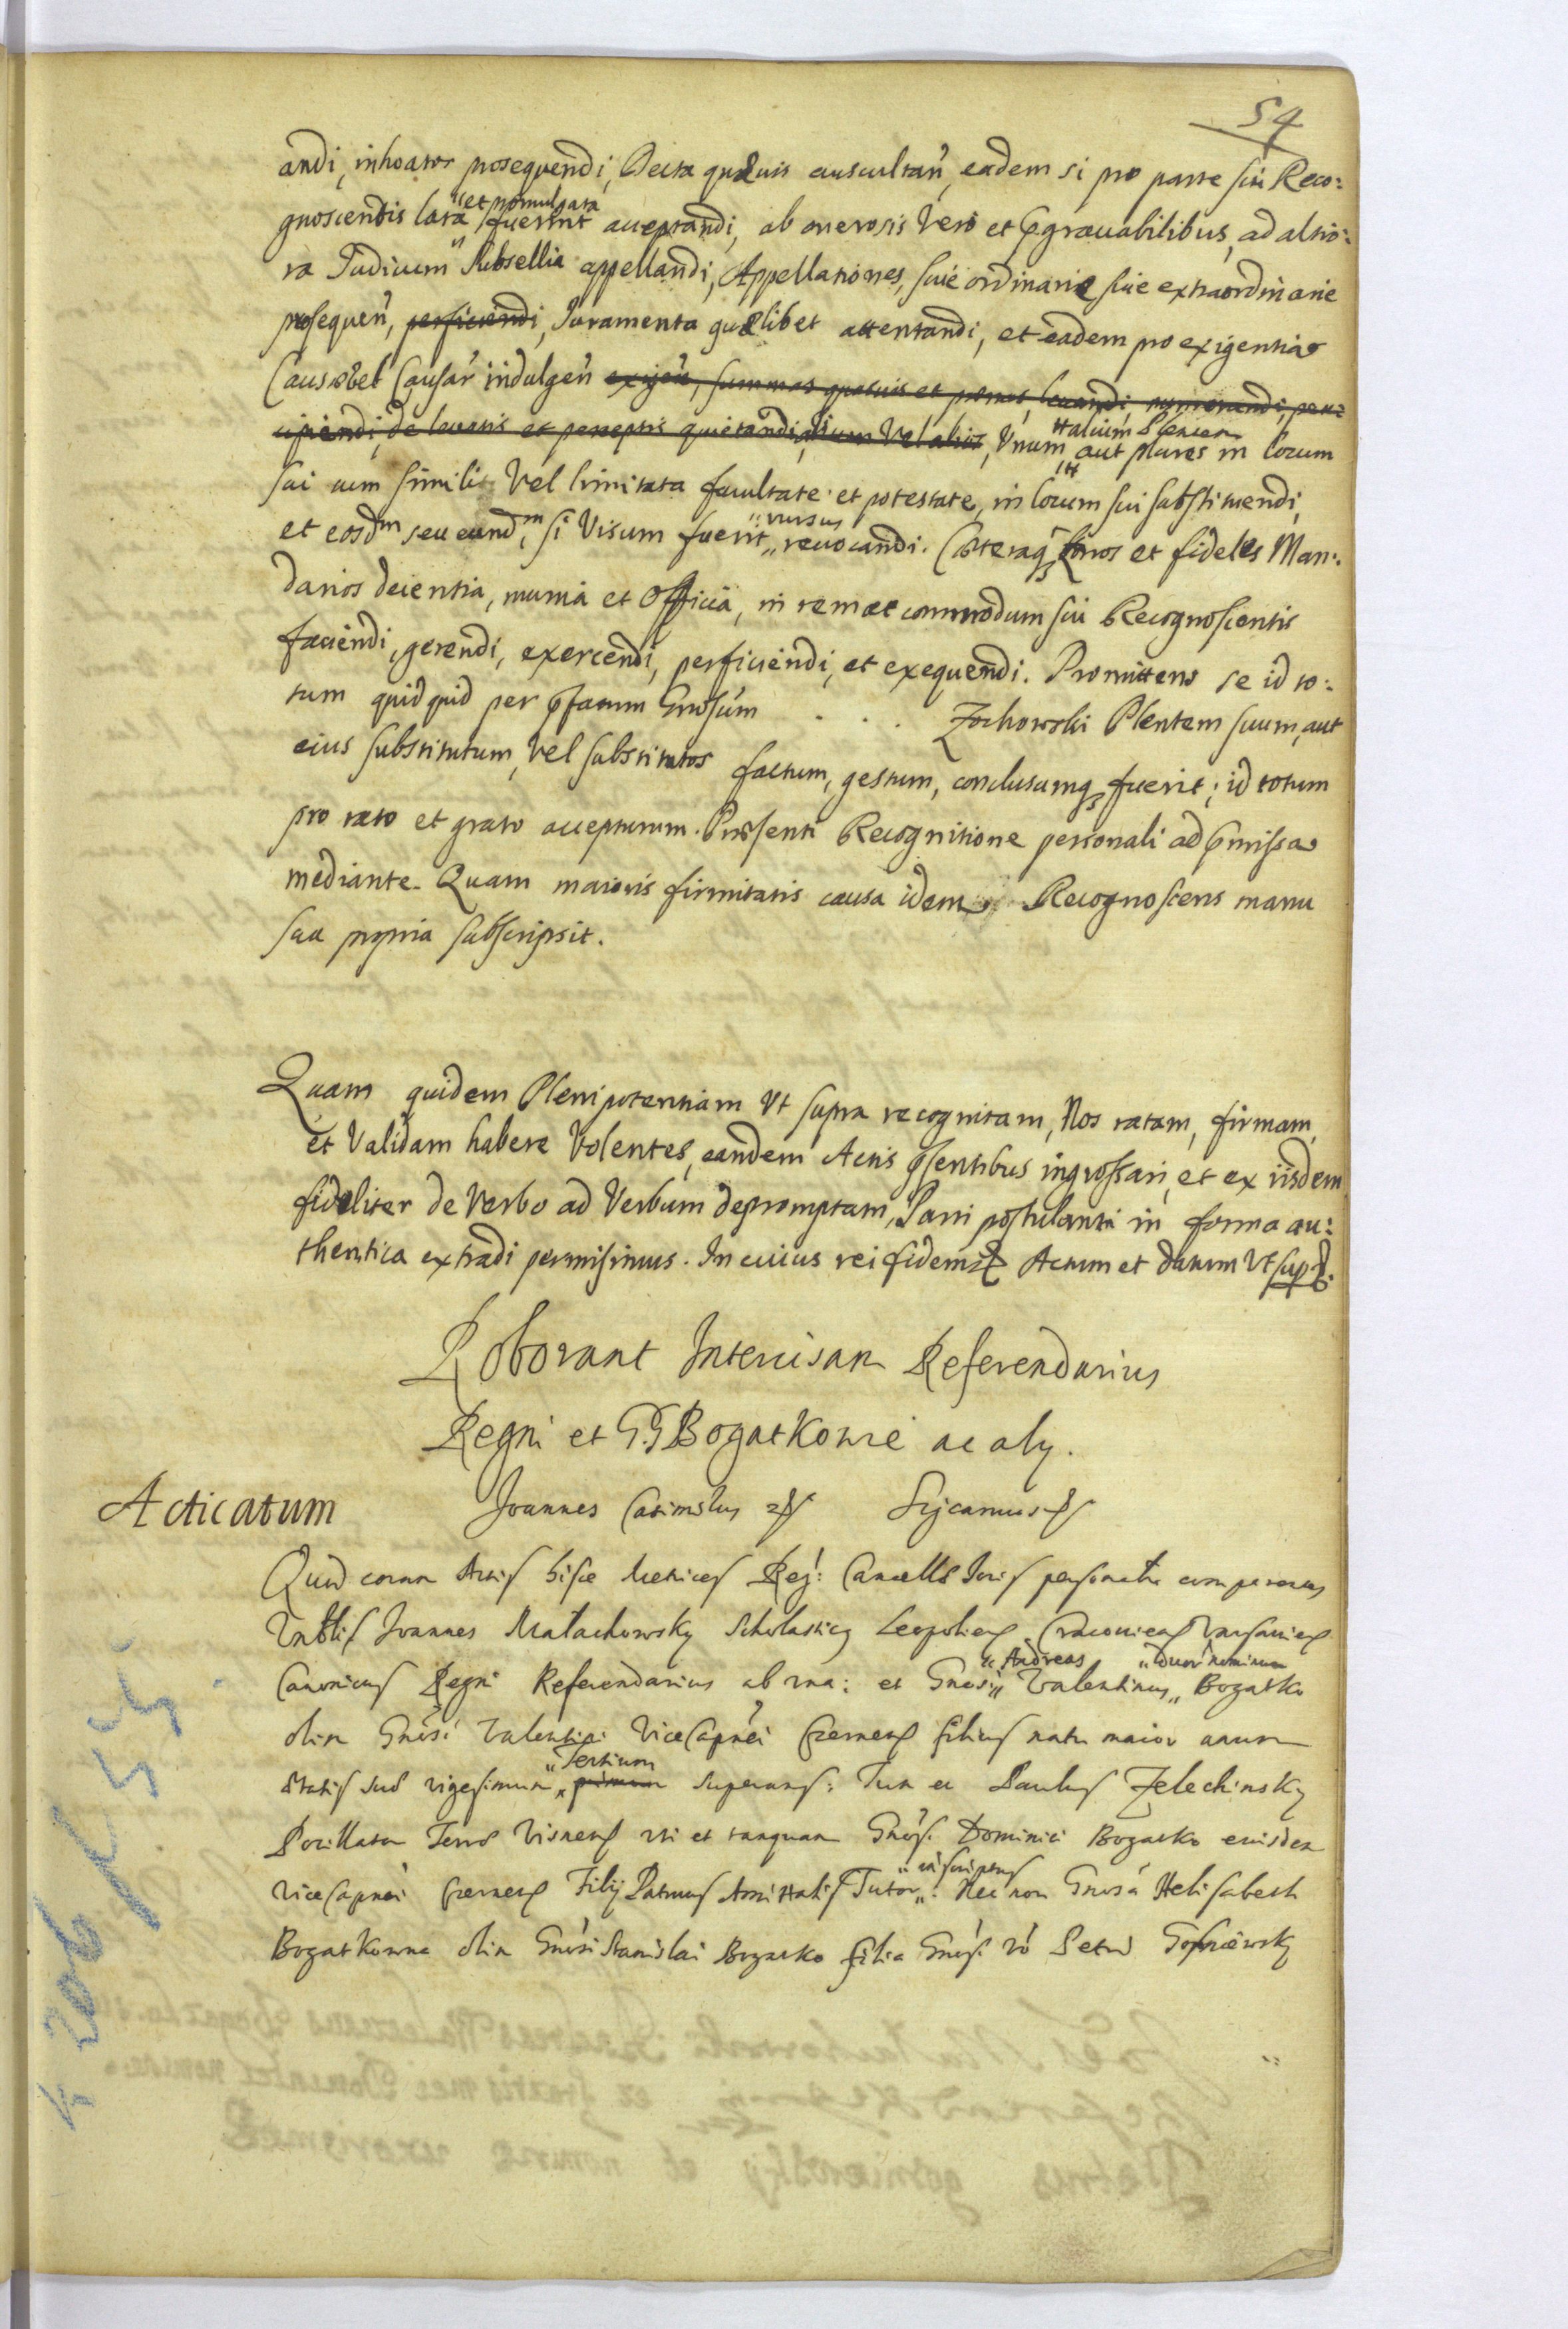 54
andi, inhoatas prosequendi, Decta quæuis auscultan̄, eadem si pro parte sui Reco:
gnoscendis lata "et promulgata" fuerint acceptandi, ab onerosis Vero et prgrauabilibus, ad altio:
ra Iudicum Subsellia appellandi, Appellationes, siue ordinarie, siue extraordinarie
prosequen̄, perficiendi, Iuramenta quælibet attentandi, et eadem pro exigentia
Causæ vel Causar̄ indulgen̄ exigen̄, summas quasuis et pænas leuandi, numerandi, perci:
cipiendi, de leuatis et perceptis quietandi, alium Vel alios, Vnum alium Plenten aut plures in locum
sui cum simili Vel limitata facultate et potestate, in locum sui substituendi,
et eosdm seu eundm, si Visum fuerit "rursus" reuocandi. Cæteraq̃ bonos et fideles Man:
datarios decentia, munia et Officia, in rem et commodum sui Recognoscentis
faciendi, gerendi, exercendi, perficiendi, et exequendi. Promittens se id to:
tum quidquid per pfatum Gnosum . . . Zochowski Plentem suum, aut
eius substitutum, Vel substitutos factum, gestum, conclusumq̃ fuerit; id totum
pro rato et grato accepturum. Præsenti Recognitione personali ad pmissa
mediante. Quam maioris firmitatis causa idem Recognoscens manu
sua propria subscripsit.
Quam quidem Plenipotentiam Vt supra recognitam, Nos ratam, firmam,
et Validam habere Volentes, eandem Actis psentibus ingrossari, et ex iisdem
fideliter de Verbo ad Verbum depromptam, Parti postulanti in forma au:
thentica extradi permisimus. In cuius rei fidem Actum et datum Vt supr.
Roborant Intercisam Referendarius
Regni et G.G Bogatkowie ac aly.
Acticatum
Joannes Casimirus Sigcamus
Quod coram Actis hisce Metrices Reg: Cancellæ Joris personaliter comparens
Joannes Małachowsky Scholasticq Leopolien Cracouien Varsauien
Canonicus Regni Referendarius ab vna: et Gnosi "Andreas" Valentinus "duor nominum" Bogatko
olim Gnosi Valentini ViceCapnei Czernen filius natu maior annum
ætatis suæ vigesimum "Tertium" primum superans: Tum et Paulus Zelechinsky
Pocillator Terræ Visnen vti et tanquam Gnosi Dominici Bogatko eiusdem
ViceCapnei Czernen Filij Patruus Amittalis Tutor. Nec non Gnosa Helisabeth
Bogatkowna olim Gnosi Stanislai Bogatko filia Gnosi vo Petri Gosniewsky
k 206 / 55